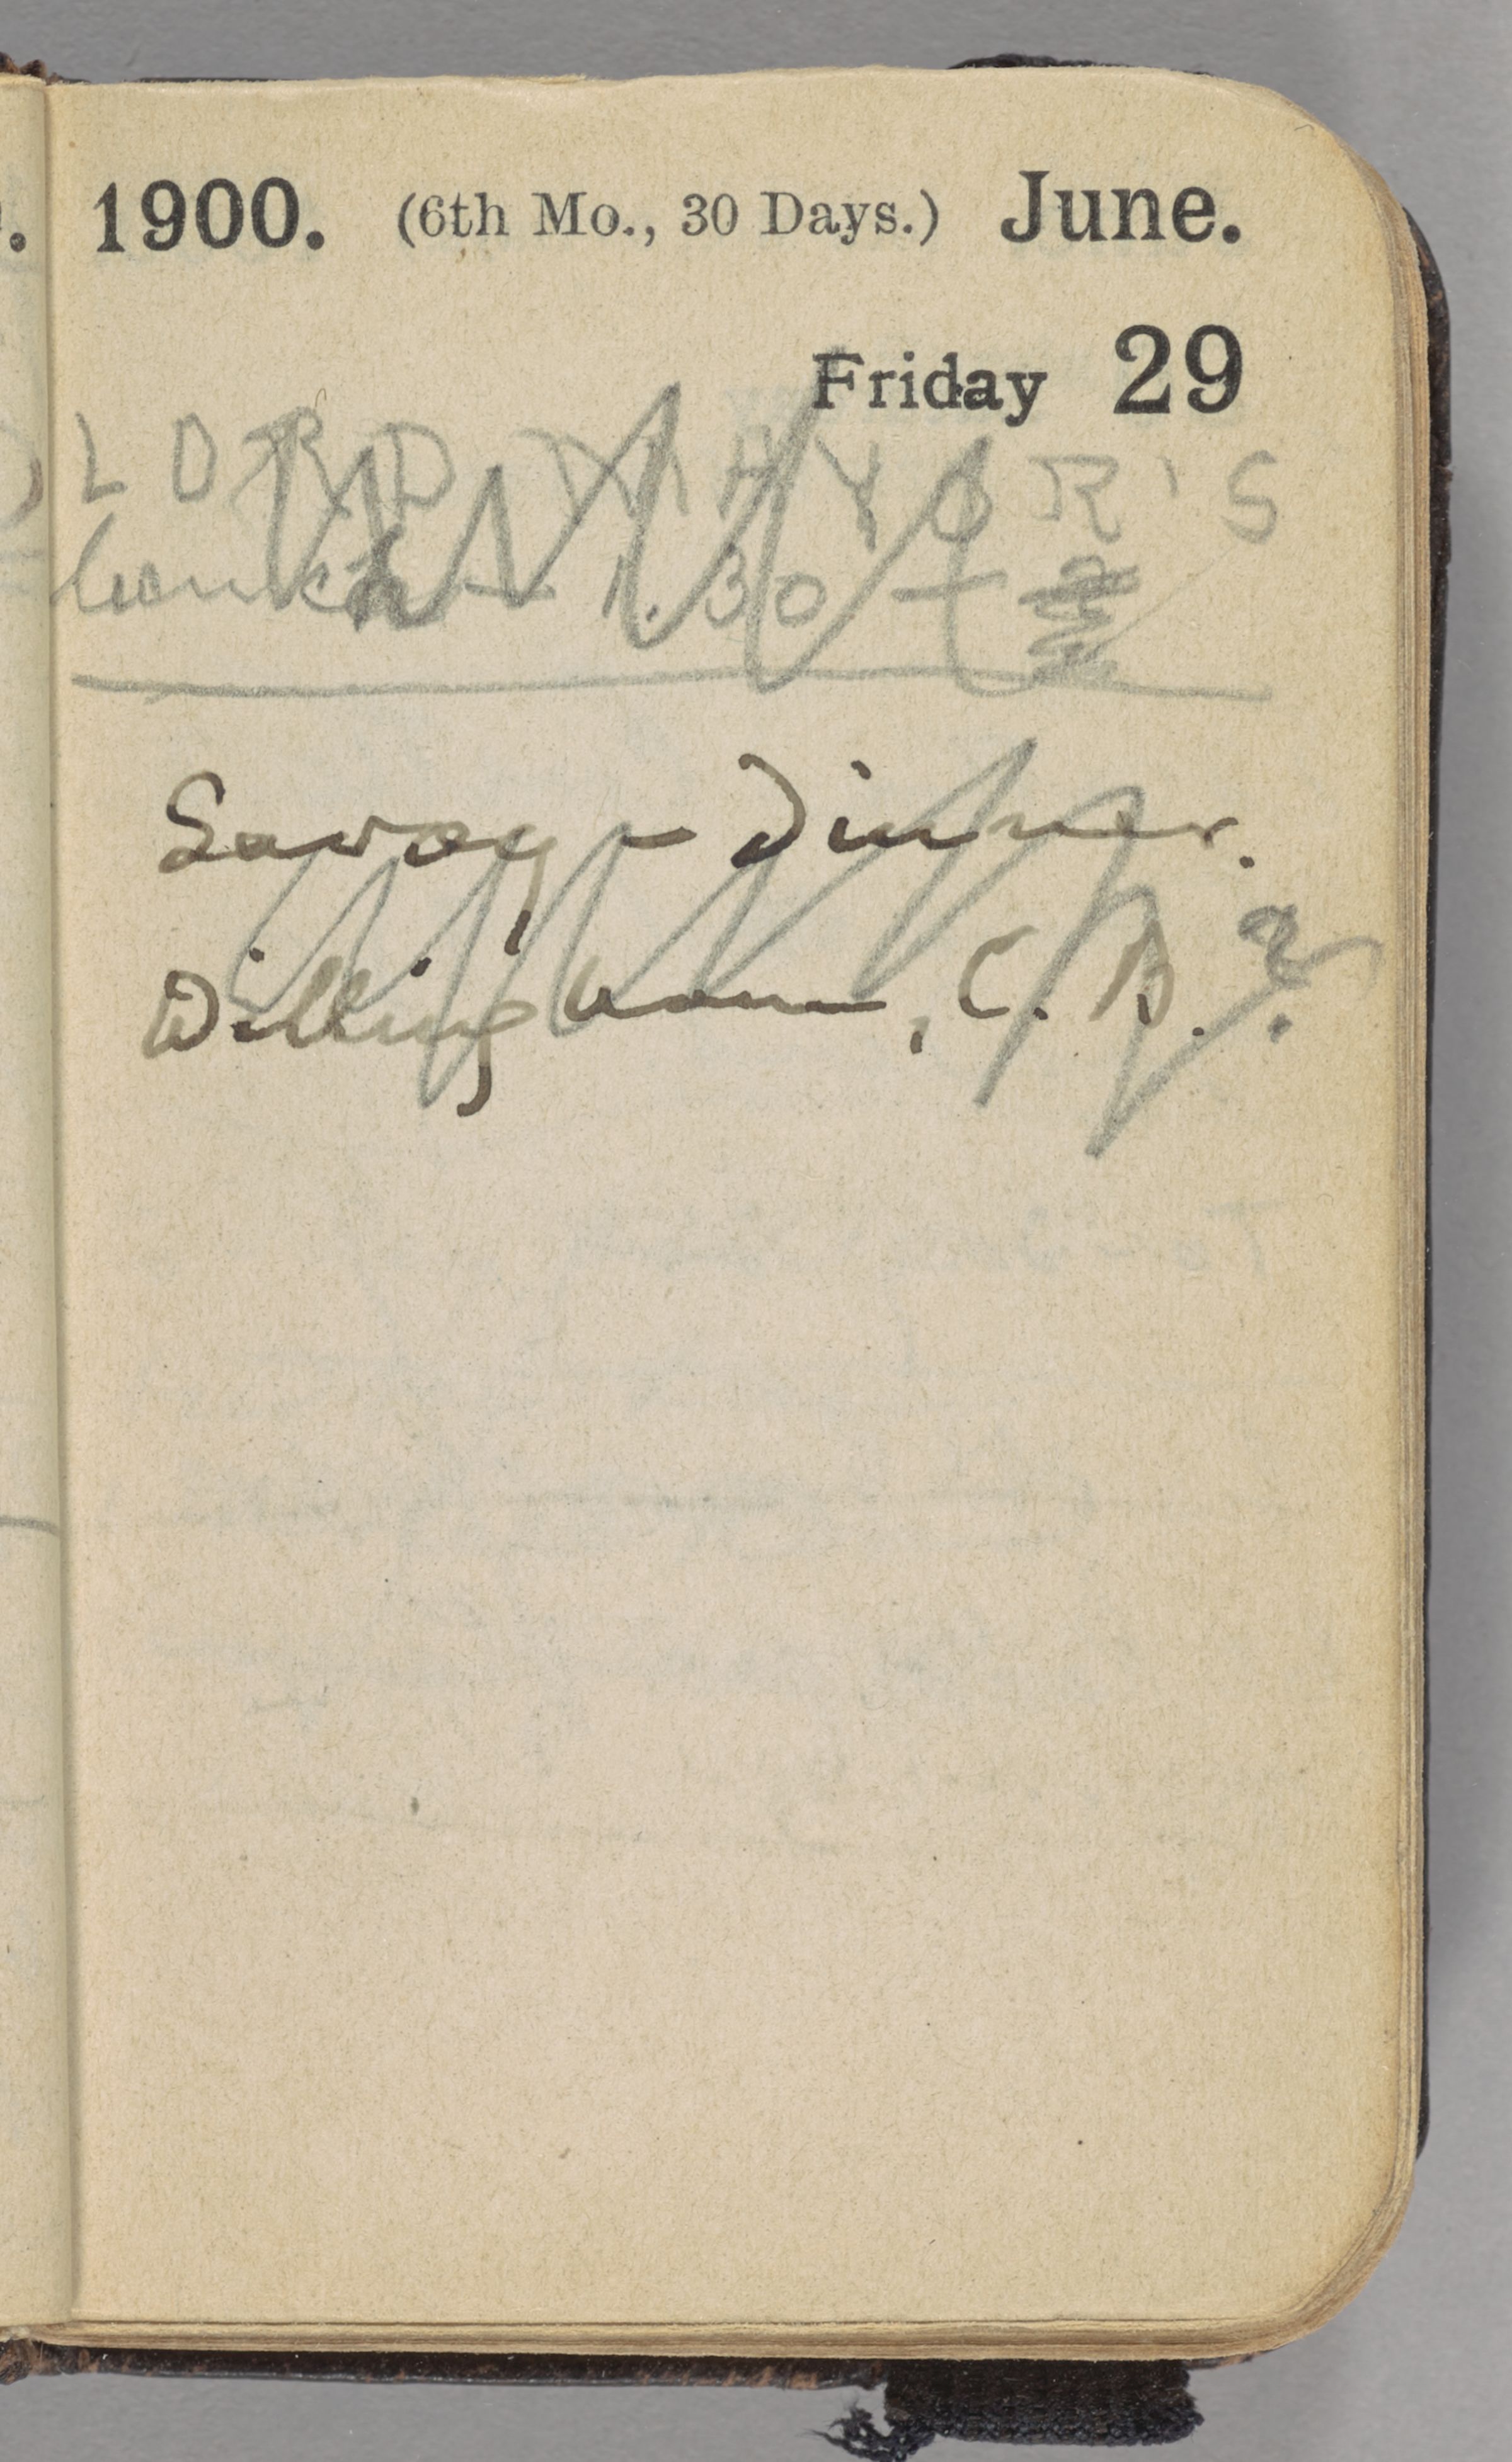 1900. (6th Mo., 30 Days.) June.
Friday 29
LORD MAYOR'S
lunch — 1.30 —
Savoy — Dinner.
Willingham, C. B. ?